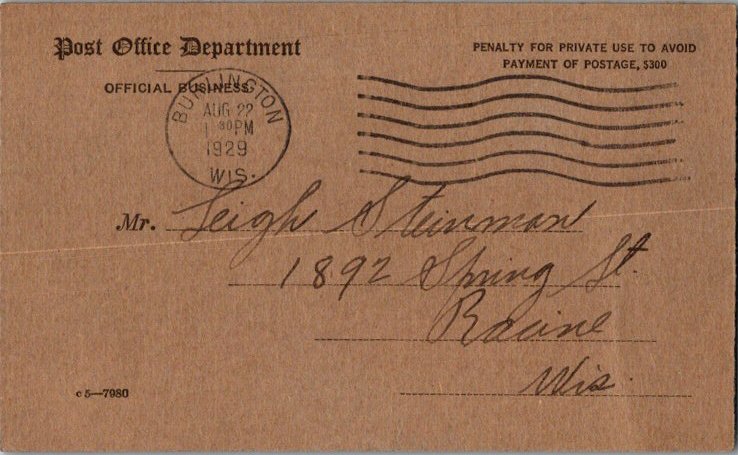 Post Office Department
PENALTY FOR PRIVATE USE TO AVOID
PAYMENT OF POSTAGE, $300
OFFICIAL BUSINESS
BURLINGTON
AUG 22
1 30 PM
1929
WIS.
Mr. Leigh Steinman
1892 Spring St.
Racine
Wis.
c5—7980